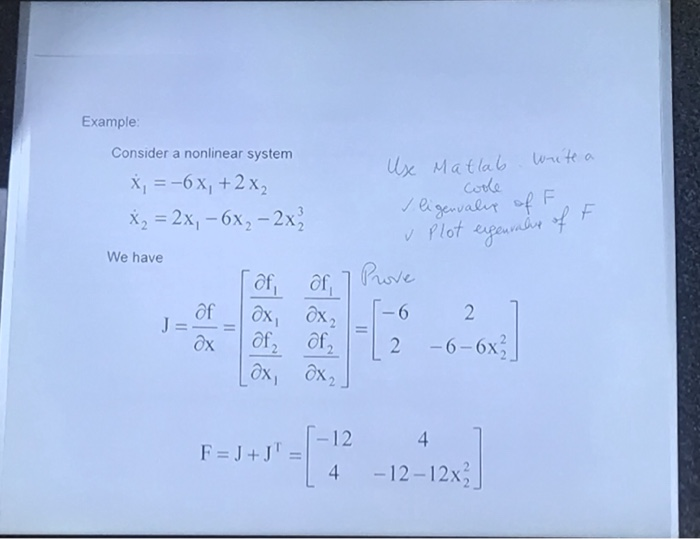 Example:
Consider a nonlinear system
ẋ₁ = −6x₁ + 2x₂
ẋ₂ = 2x₁ − 6x₂ − 2x₂³
Use Matlab write a
code
✓ Eigenvalue of F
✓ Plot eigenvalue of F
We have
Prove
J = ∂f/∂x = [∂f₁/∂x₁ ∂f₁/∂x₂; ∂f₂/∂x₁ ∂f₂/∂x₂] = [−6 2; 2 −6−6x₂²]
F = J + Jᵀ = [−12 4; 4 −12−12x₂²]